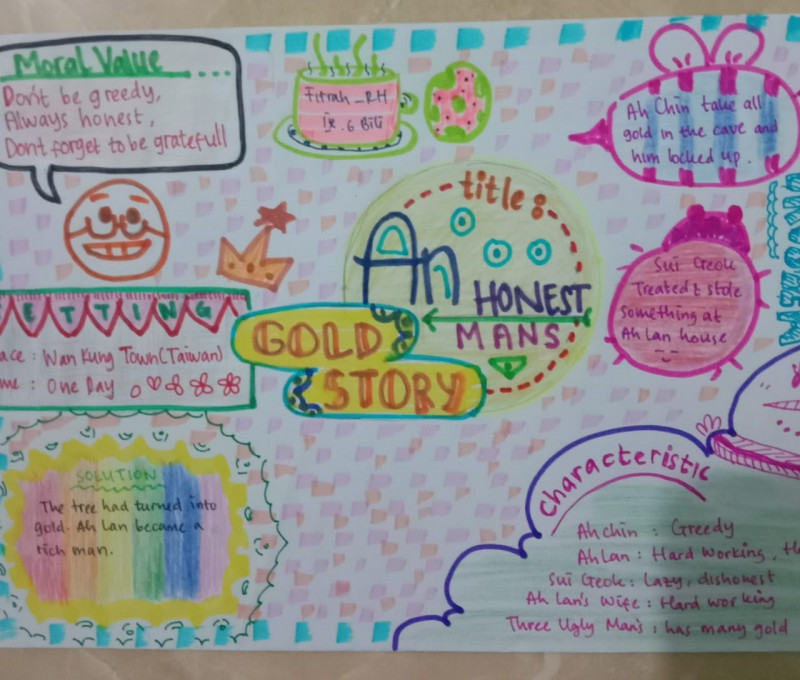 Moral Value
Don't be greedy,
Always honest,
Don't forget to be gratefull
Fitrah _ RH
IX . 6 Bili
Ah Chin take all
gold in the cave and
him locked up .
title :
An
HONEST
MANS
GOLD
STORY
Sui Geok
Treated & stole
something at
Ah Lan house
ETTING
ace : Wan Kung Town (Taiwan)
me : One Day
SOLUTION
The tree had turned into
gold. Ah Lan became a
rich man.
Characteristic
Ah chin : Greedy
Ah Lan : Hard working ,
Sui Geok : Lazy, dishonest
Ah Lan's Wife : Hard working
Three Ugly Man's : has many gold